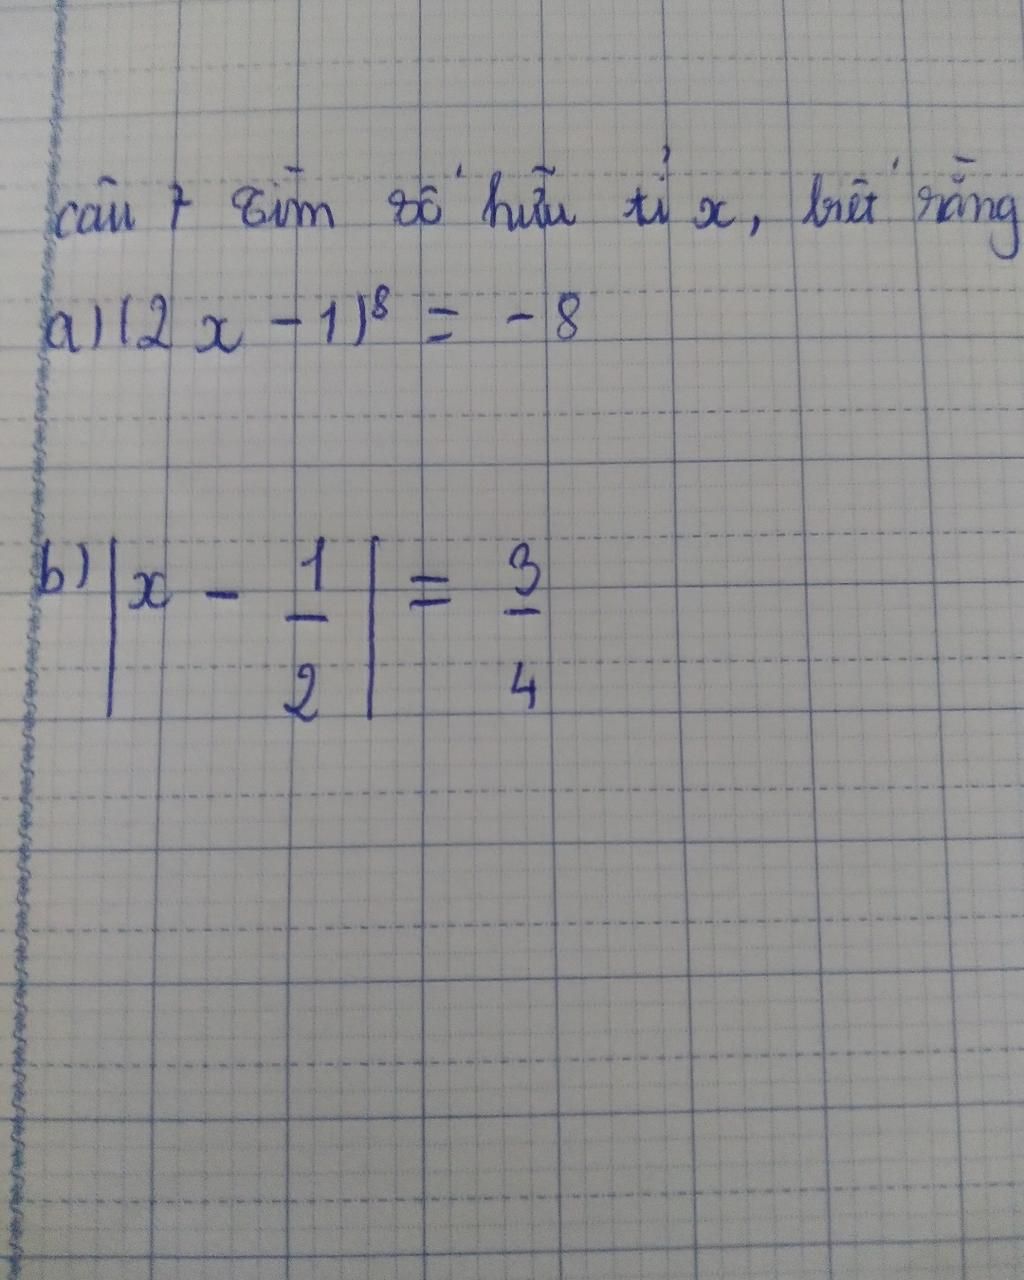 câu 7 Tìm số hữu tỉ x, biết rằng
a) (2x - 1)⁸ = -8
b) |x - 1/2| = 3/4